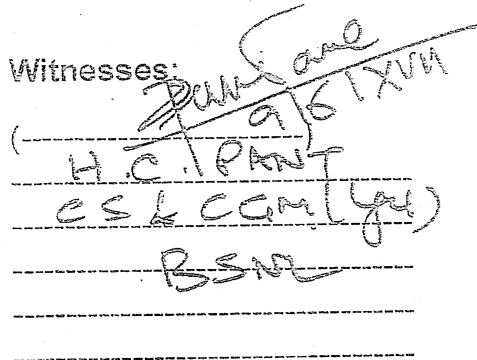 Witnesses:
9/6/XVII
(
)
H.C. PANT
CS & CGM (Lgl)
BSNL